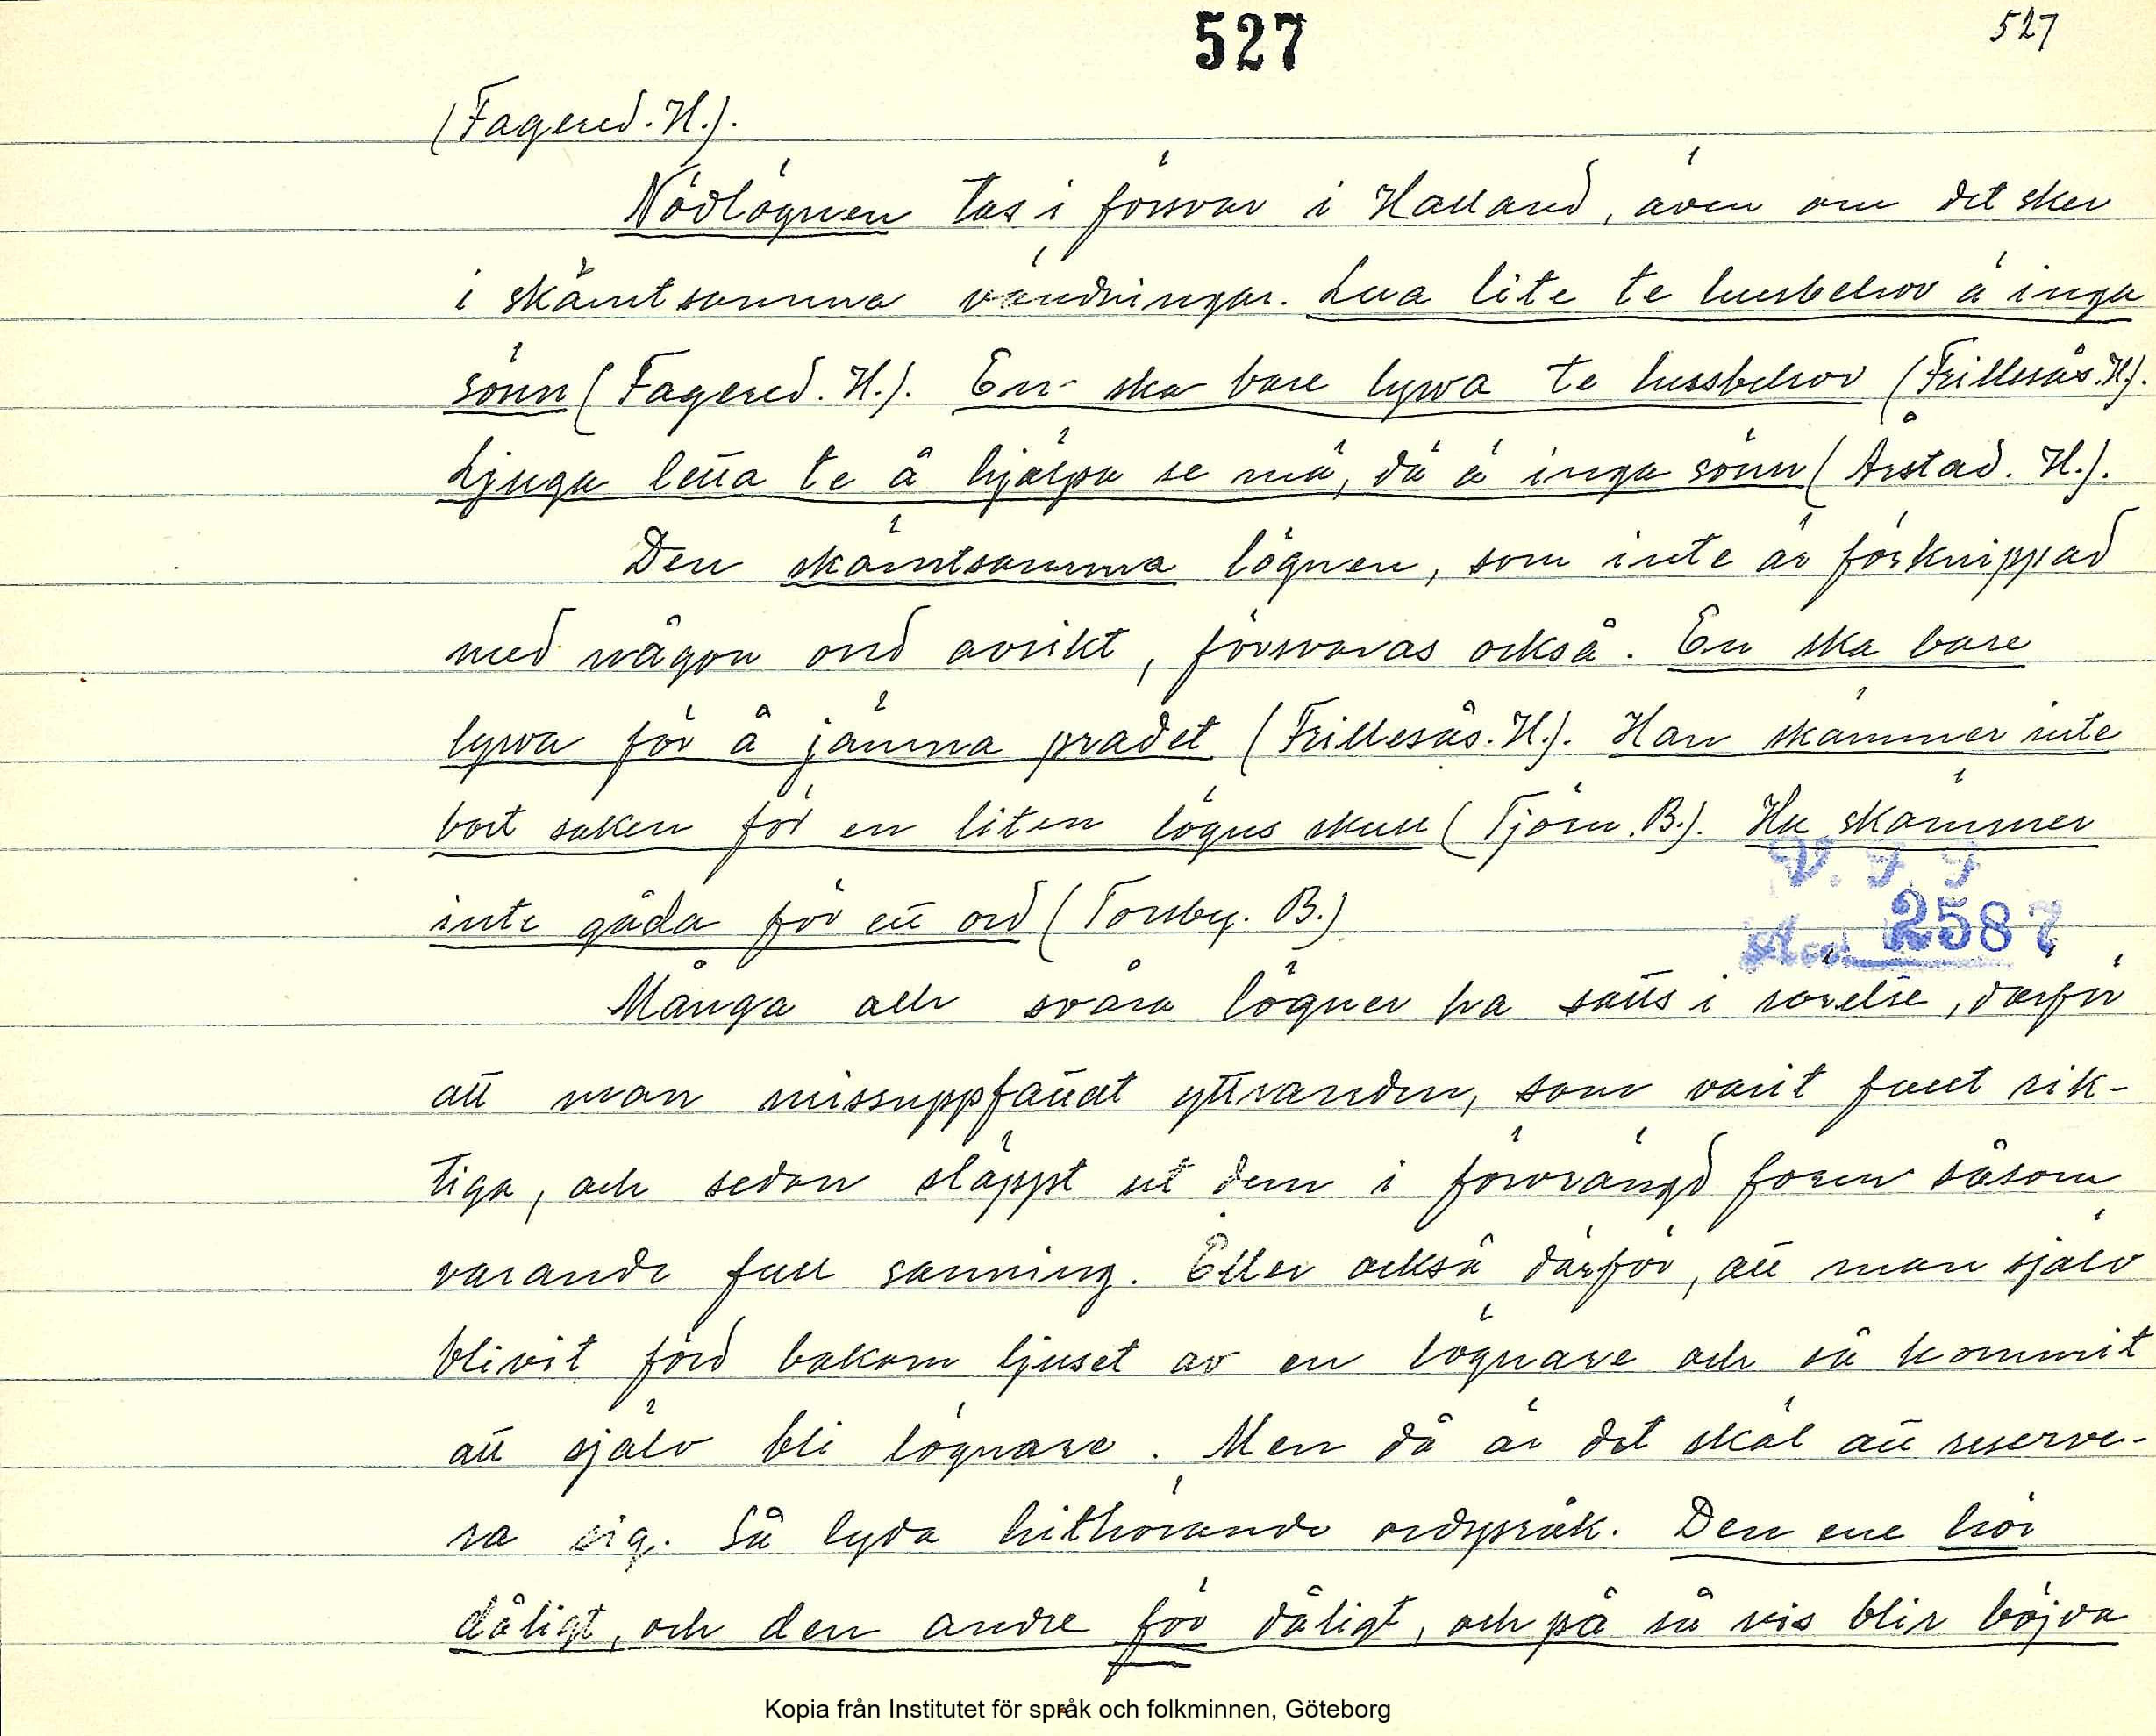 527
527
(Fagered. H.).
Nödlögnen tas i försvar i Halland, även om det sker
i skämtsamma vändningar. Lua lite te husbehov ä inga
sönn (Fagered. H.). En ska bare lywa te hussbehov (Frillesås. H.).
Ljuga letta te å hjälpa se mä, dä ä inga sönn (Årstad. H.).
Den skämtsamma lögnen, som inte är förknippad
med någon ond avsikt, försvaras också. En ska bare
lywa för å jämna pradet (Frillesås. H.). Han skämmer inte
bort saken för en liten lögns skull (Tjörn. B.). Hu skämmer
inte gåda för ett ord (Torsby. B.)
V. F. F
Acc. 2587
Många och svåra lögner ha satts i rörelse, därför
att man missuppfattat yttranden, som varit fullt rik-
tiga, och sedan släppt ut dem i förvrängd form såsom
varande full sanning. Eller också därför, att man själv
blivit förd bakom ljuset av en lögnare och så kommit
att själv bli lögnare. Men då är det skäl att reserve-
ra sig. Så lyda hithörande ordspråk. Den ene hör
dåligt, och den andre för dåligt, och på så vis blir böjda
Kopia från Institutet för språk och folkminnen, Göteborg